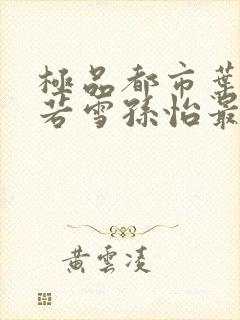 極品都市葉
若雪孫怡最
黃雲凌